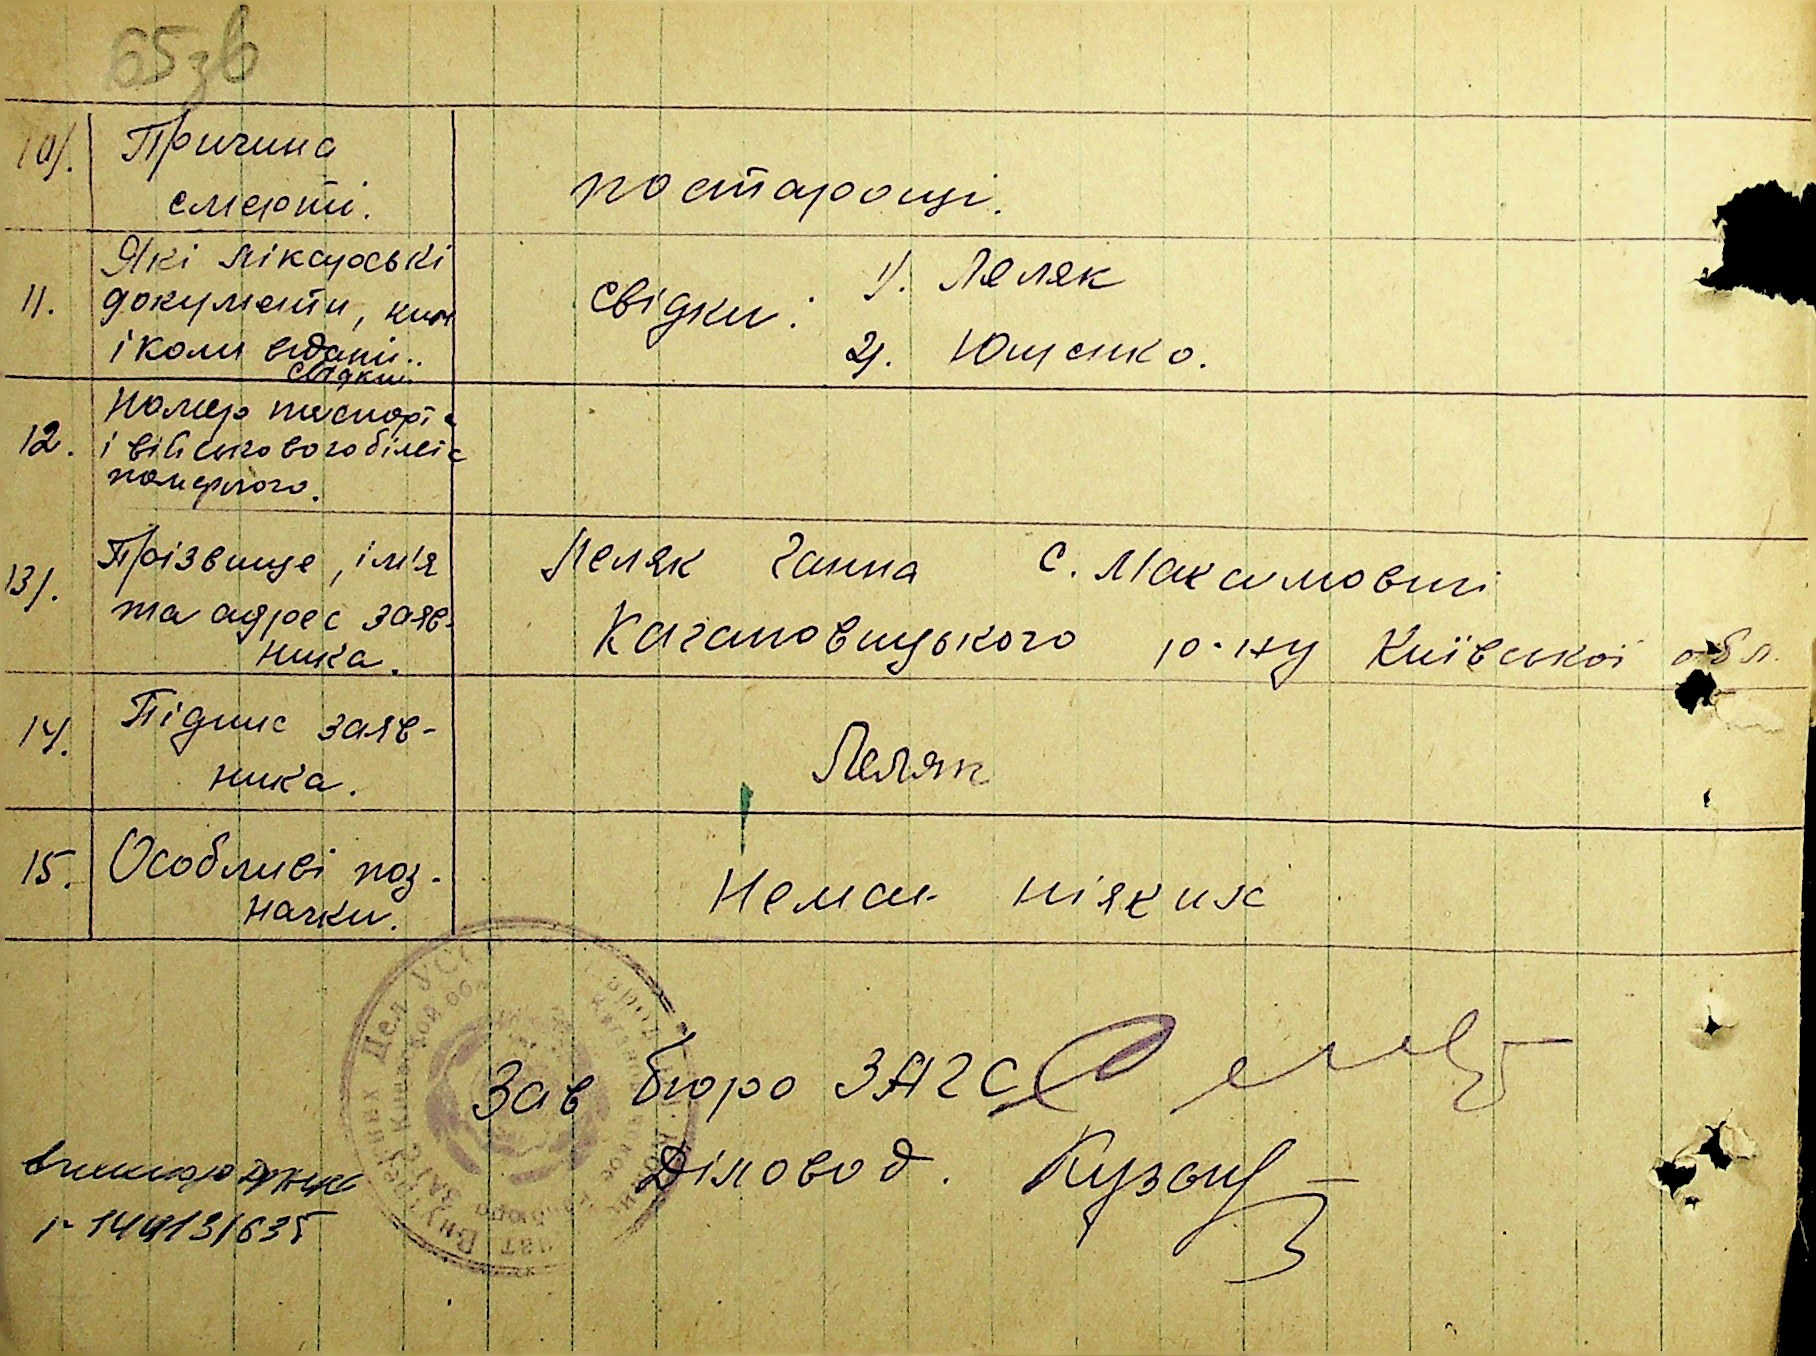 65зв
10). Причина
смерти.
по старощі.
11. Які лікарські
документи, ким
і коли видані..
свідки.
свідки: 1). Леляк
2). Ющенко.
12. Номер паспорта
і військового білєта
померлого.
13). Прізвище, ім'я
та адрес заяв-
ника.
Леляк Ганна с. Максимовичі
Кагановицького р-ну Київської обл.
14). Підпис заяв-
ника.
Леляк
15. Особливі поз-
начки.
Немає ніяких
Зав бюро ЗАГС
Діловод.